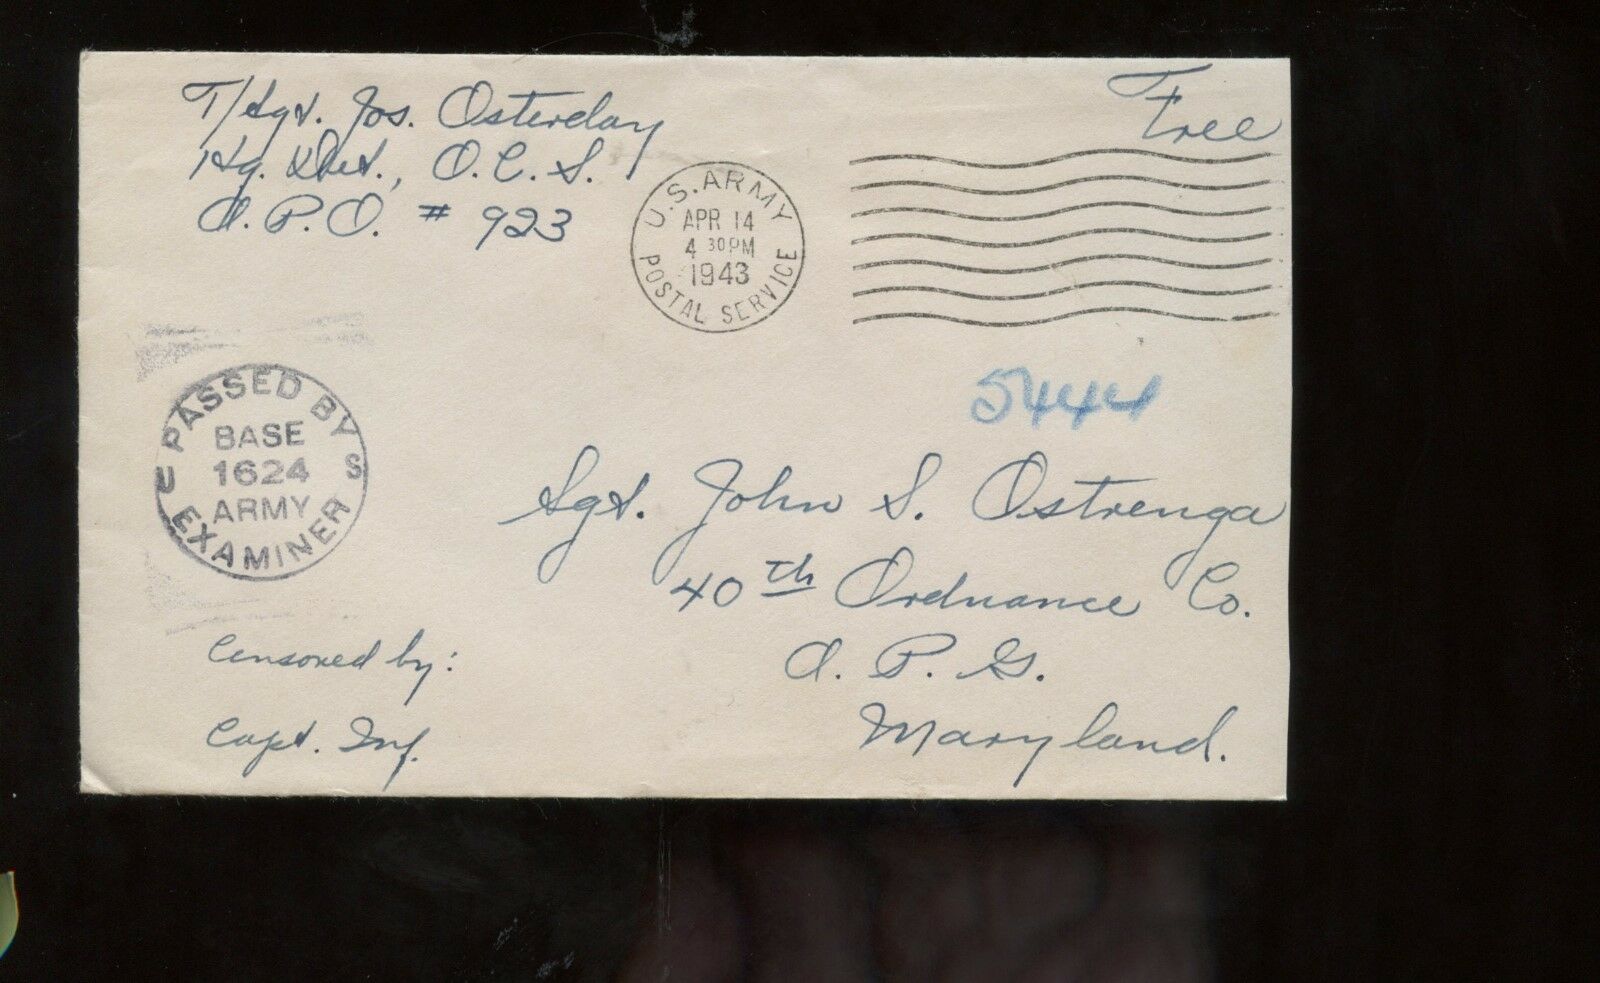 T/Sgt. Jos. Osterday
Hq. Det., O.C.S.
A.P.O. # 923
Free
U.S. ARMY
APR 14
4 30 PM
1943
POSTAL SERVICE
5444
PASSED BY
BASE
U 1624 S
ARMY
EXAMINER
Sgt. John S. Ostrenga
40th Ordnance Co.
A. P. G.
Maryland.
Censored by:
Capt. Inf.